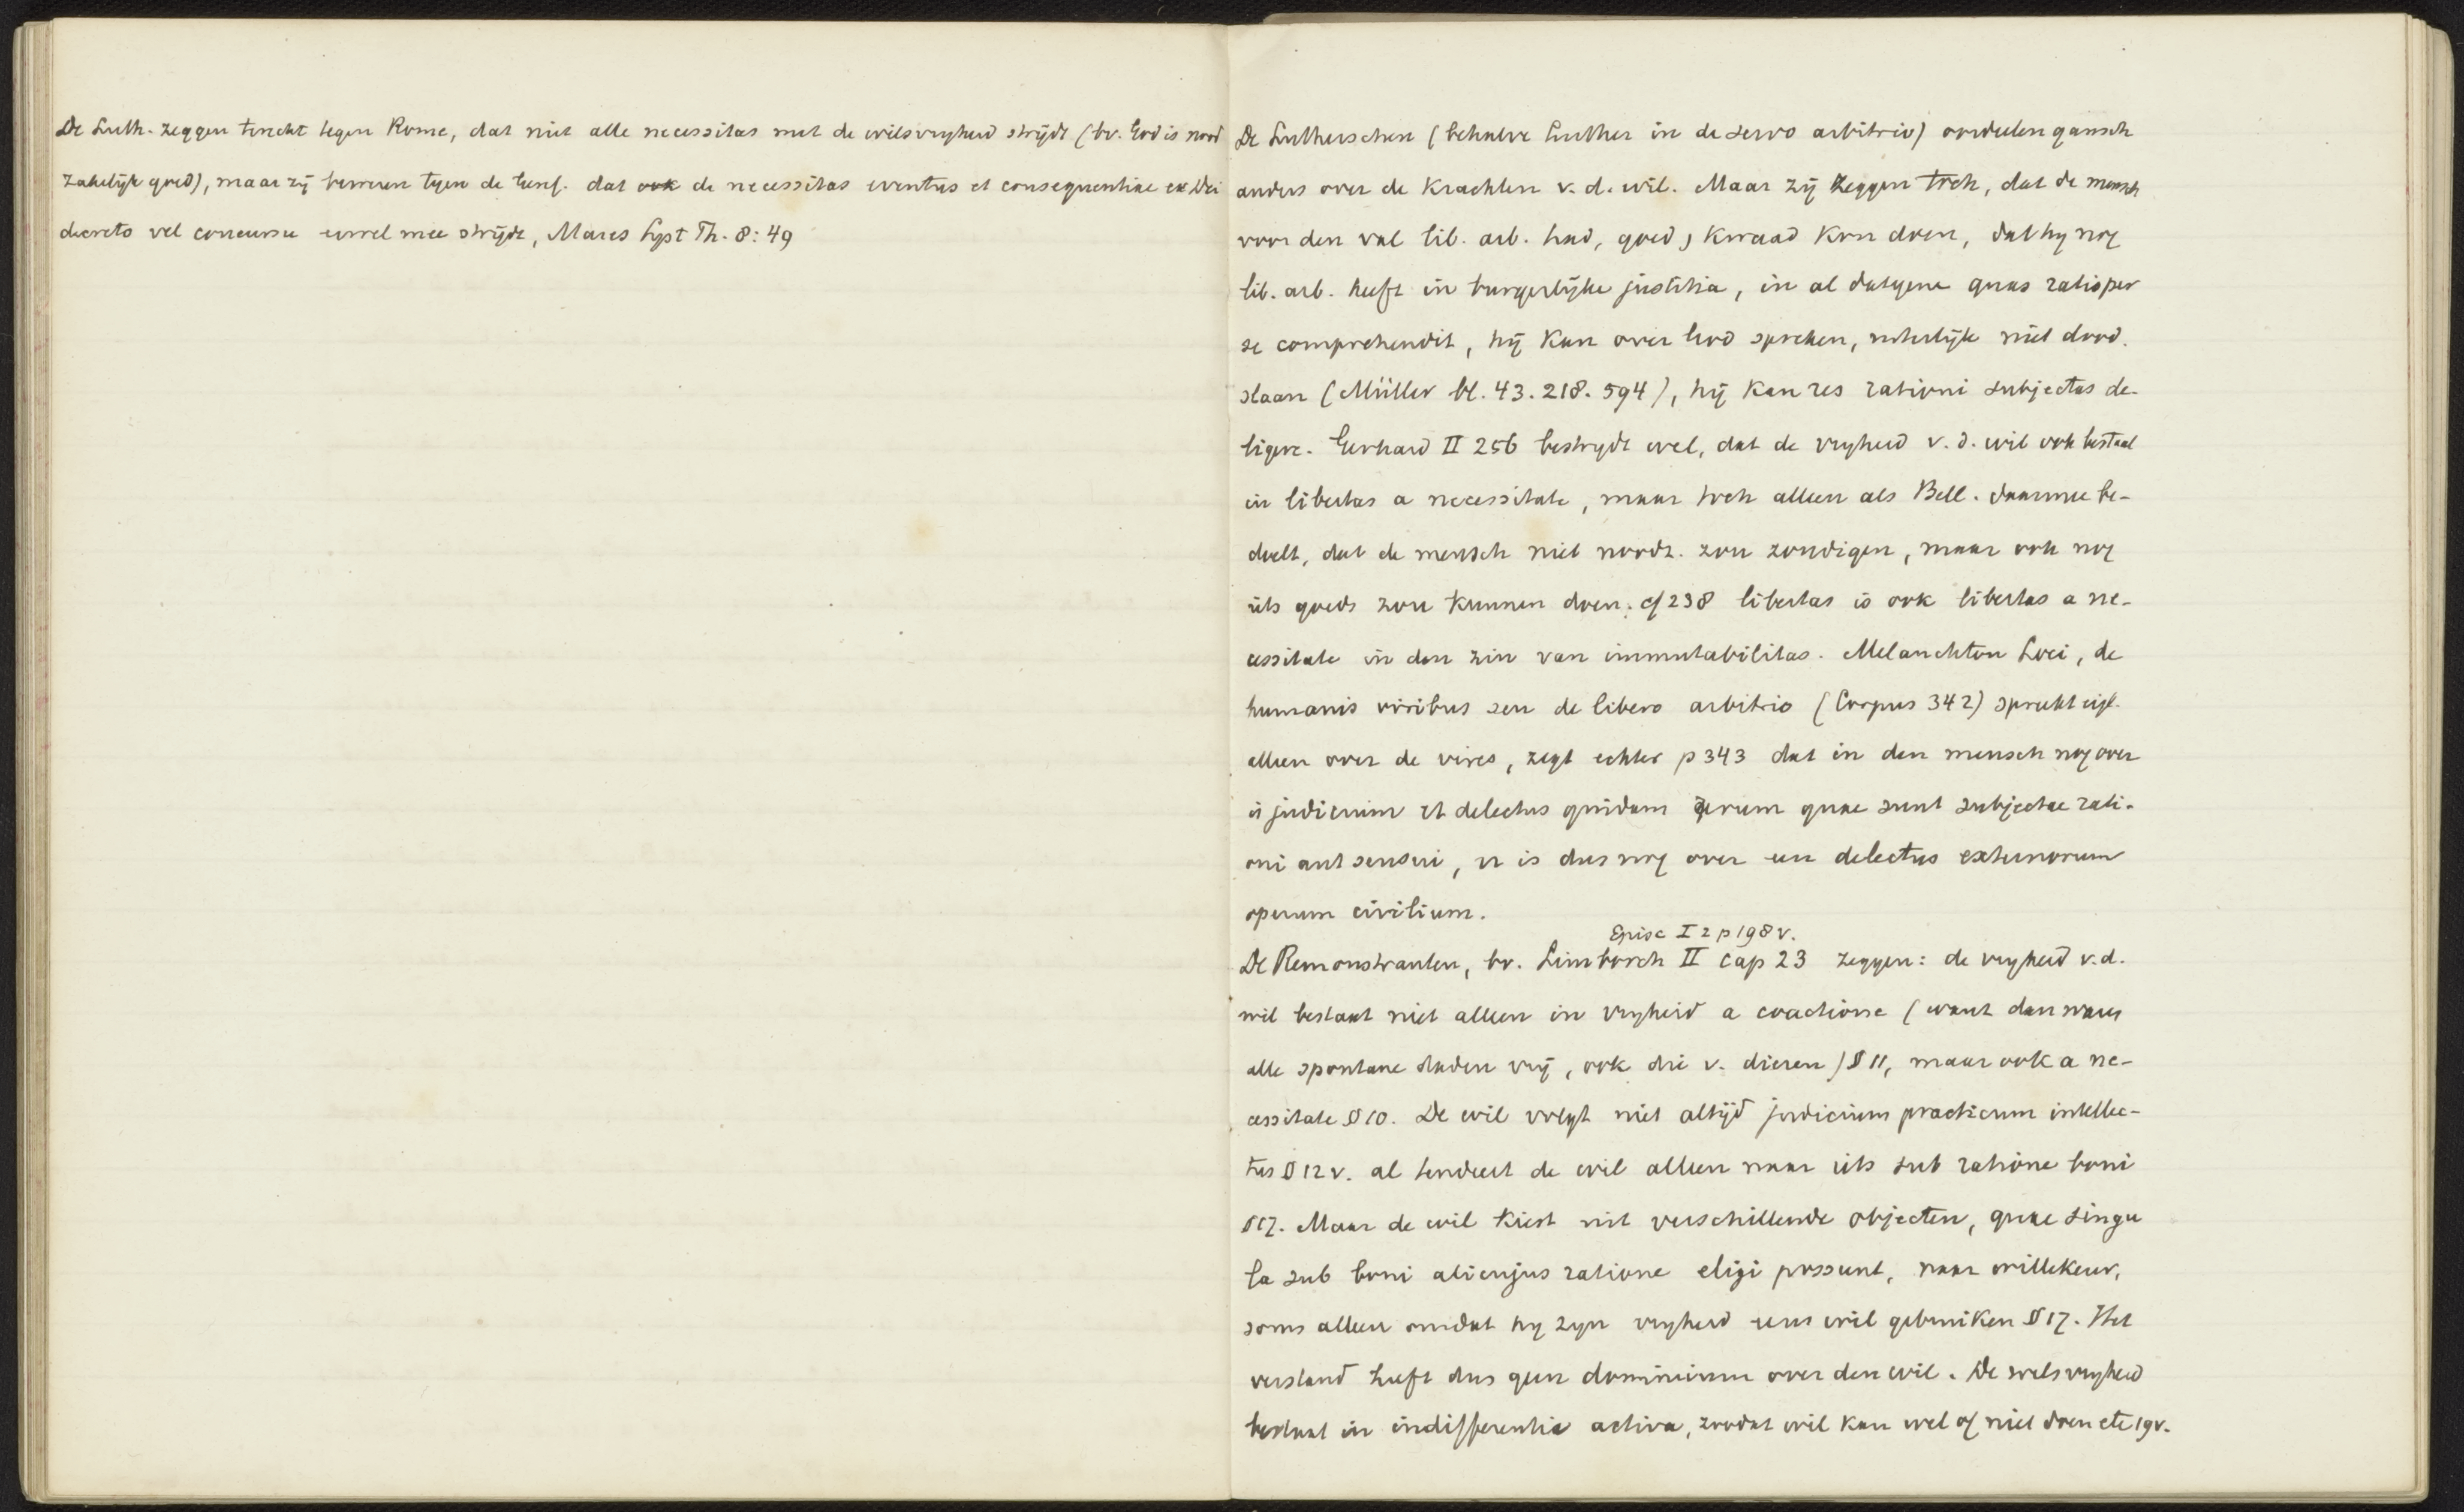 De Luth. zeggen terecht tegen Rome, dat niet alle necessitas met de wilsvryheid strijdt (bv. God is nood
zakelijk goed), maar zij beweren tegen de Geref. dat ook de necessitas eventus et consequentiae ex Dei
decreto vel concursu ermee strijdt, Mares Syst Th. 8:49
De Lutherschen (behalve Luther in de servo arbitrio) oordeelen gansch
anders over de krachten v. d. wil. Maar zij zeggen toch, dat de mensch
voor den val lib. arb. had, goed, kwaad kon doen, dat hy nog
lib. arb. heeft in burgerlijke justitia, in al datgene quas ratio per
se comprehendit, hij kan over God spreken, uiterlijk niet dood.
slaan (Müller bl. 43. 218. 594), hij kan res rationi subjectas de-
ligere. Gerhard II 256 bestrydt wel, dat de vryheid v. d. wil ook bestaat
in libertas a necessitate, maar toch alleen als Bell. daarmee be-
doelt, dat de mensch niet noodz. zou zondigen, maar ook nog
iets goeds zou kunnen doen. cf 238 libertas is ook libertas a ne-
cessitate in den zin van immutabilitas. Melanchton Loci, de
humanis viribus seu de libero arbitrio (Corpus 342) spreekt eigl.
alleen over de vires, zegt echter p 343 dat in den mensch nog over
is judicium et delectus quidam rerum quae sunt subjectae rati-
oni aut sensui, er is dus nog over een delectus externorum
operum civilium.
Episc I 2 p 198 v.
De Remonstranten, bv. Limborch II cap 23 zeggen: de vryheid v.d.
wil bestaat niet alleen in vryheid a coactione (want dan waren
alle spontane daden vrij, ook die v. dieren) § 11, maar ook a ne-
cessitate § 10. De wil volgt niet altijd judicium practicum intellec-
tus § 12 v. al tendeert de wil alleen naar iets sub ratione boni
§ 17. Maar de wil kiest uit verschillende objecten, quae singu
la sub boni alicujus ratione eligi possunt, naar willekeur,
soms alleen omdat hy zyn vryheid eens wil gebruiken § 17. Het
verstand heeft dus geen dominium over den wil. De wilsvryheid
bestaat in indifferentia activa, zoodat wil kan wel of niet doen etc 19v.